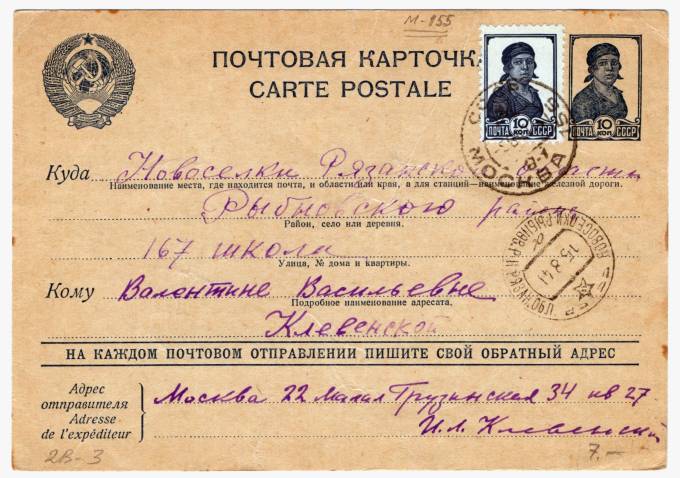 М-155
ПОЧТОВАЯ КАРТОЧКА
CARTE POSTALE
10 КОП
ПОЧТА СССР
10 КОП
ПОЧТА СССР
МОСКВА
Куда Новоселки Рязанской области
Наименование места, где находится почта, и области или края, а для станций—наименование железной дороги.
Рыбновского района
Район, село или деревня.
167 школа
Улица, № дома и квартиры.
15.8.41
Кому Валентине Васильевне
Подробное наименование адресата.
Клевенской
НА КАЖДОМ ПОЧТОВОМ ОТПРАВЛЕНИИ ПИШИТЕ СВОЙ ОБРАТНЫЙ АДРЕС
Адрес
отправителя
Adresse
de l'expéditeur
Москва 22 Малая Грузинская 34 кв 27
И.Л. Клевенский
2В-3
7.—